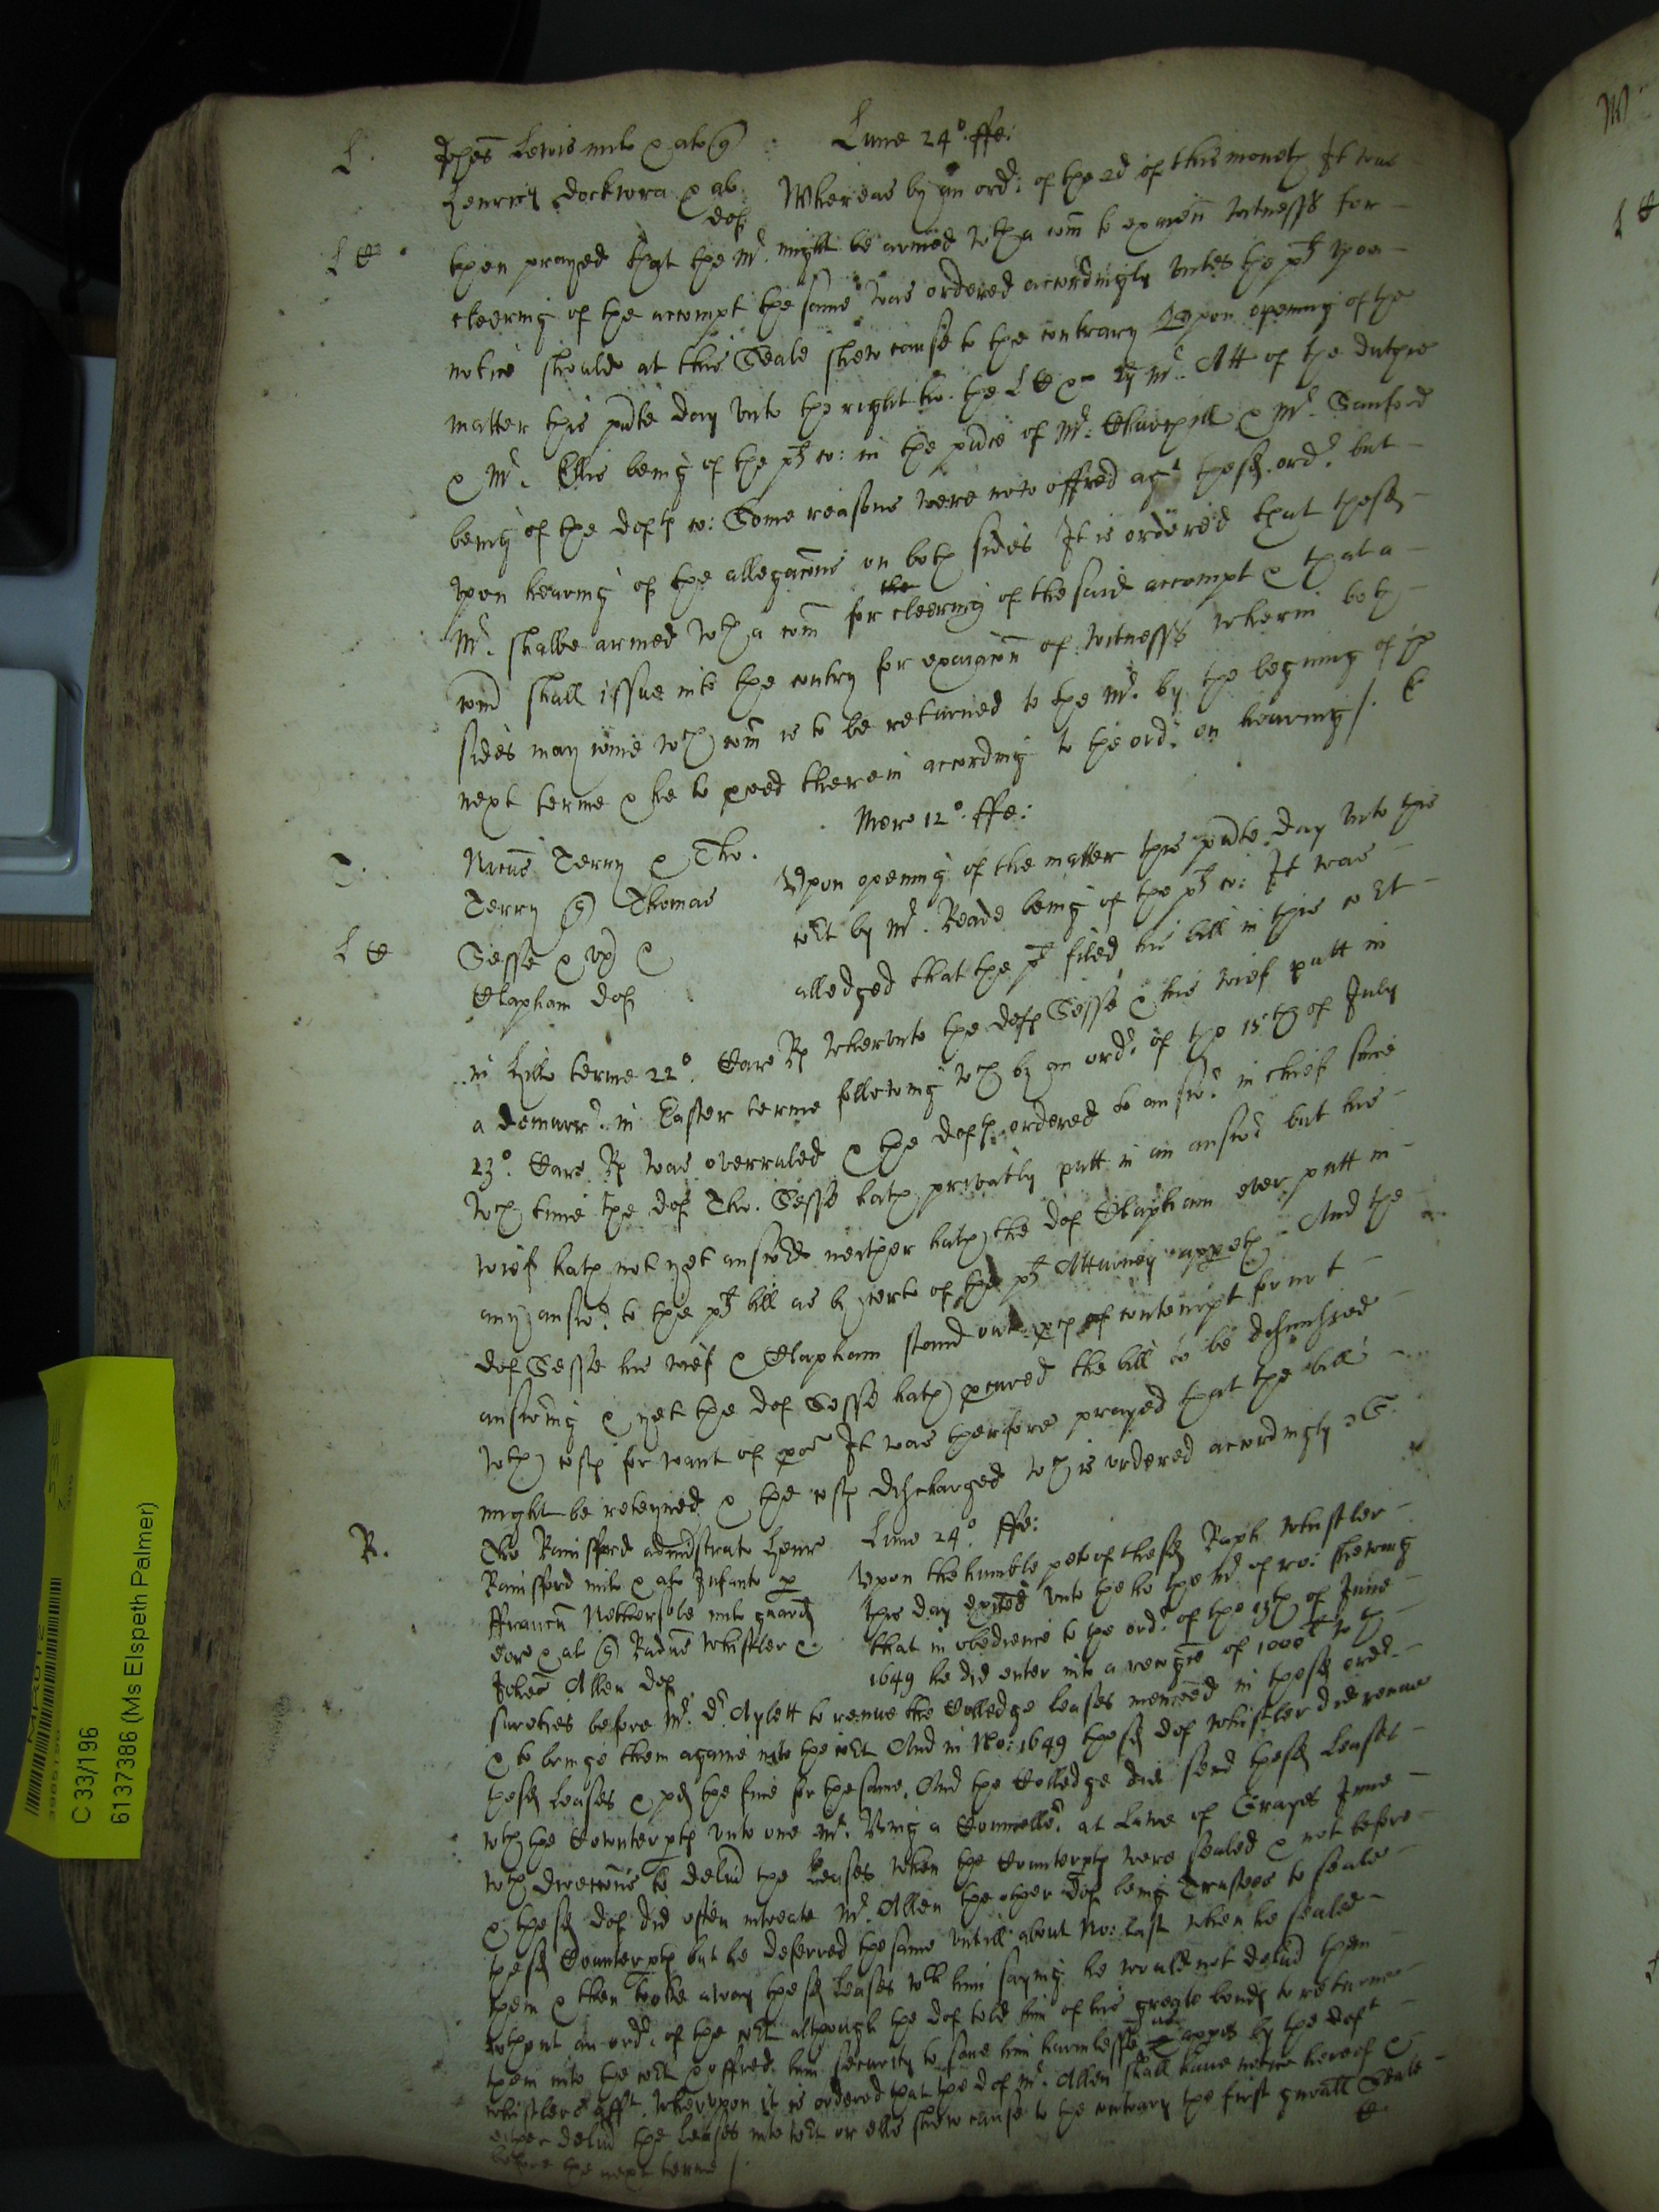 L. Johes Lewis mil & al q Lune 24°. ffe:
Henric Dockwra & al Whereas by an ord: of the 2d of this moneth It was
def
LC then prayed that the Mr. might be armed wth a com to exaien witnesses for
cleering of the accompt the same was ordered accordingly vnles the pl vpon
notice should at this Seale shew cause to the contrary Vpon opening of the
matter this pnte day vnto the right ho. the LC &c By Mr. Att of the Dutchie
& Mr. Ellis being of the pl co: in the pnce of Mr. Churchill & Mr. Sanford
being of the defts co: Some reasons were now offred agt the sd ord. but
vpon hearing of the allegacons on both sides It is ordered that the sd
Mr. shalbe armed wth a com for the cleering of the said accompt & that a
com shall issue into the contry for exaiacon of witnesses wherin both
sides may ioine wch com is to be returned to the Mr. by the begining of the
next terme & he to pceed therein according to the ord. on hearing /. E
Merc 12°. ffe:
T. Nicus Terry & Tho. Vpon opening of the matter this pnte day vnto this
Terry q Thomas coLt by Mr. Reade being of the pl co: It was
LC Gesse & vx & alledged that the pl filed his bill in this coLt
Clapham def
in Hill terme 22°. Caro Rs whervnto the defts Gesse & his wief putt in
a demurr. in Easter terme following wch by an ord. of the 15th of July
23°. Caro. Rs was overruled & the defts ordered to answ. in chief since
wch time the def Tho. Gesse hath privatly putt in an answ but his
wief hath not yet answed neither hath the def Clapham ever putt in
any answ. to the pl bill as by certe of the pl Attorney appeth And the
def Gesse his wief & Clapham stand out pces of contempt for not
answing & yet the def Gesse hath pcured the bill to be dismissed
wth costs for want of pcn It was therfore prayed that the bill
might be reteyned & the costs discharged wch is ordered accordingly
R. Tho Rainsford administrato Henr Lune 24°. ffe:
Rainsford mil & al Infant p Vpon the humble peto of the sd Raph Whistler
ffrancu Nethersole mil guard this day exited vnto the ho the Mr of ro: shewing
eor & al q Radus Whistler & that in obedience to the ord. of the 13th of June
Johes Allen def 1649 he did enter into a recogce of 1000li wth
sureties before Mr. Dr. Aylett to renue the Colledge leases menconed in the sd ord.
& to bringe them againe into the coLt And in No: 1649 the sd def Whistler did renue
the sd leases & pd the fine for the same. And the Colledge did send the sd leases
wth the Counterpts vnto one Mr. King a Councello. at Lawe of Grayes Inne
wth direccons to deliu the leases when the Counterpts were sealed & not before
& the sd def did often intreate Mr. Allen the other def being Trustee to seale
the sd Counterpts but he deferred the same vntill about No: last when he sealed
them & then tooke away the sd leases wth him saying he would not deliu them
wthout an ord. of the coLt although the def told him of his greate bonds to returne
them into the coLt & offred him security to saue him harmlesse as appes by the deft
Whistlers afft. Whervpon it is ordered that the def Mr. Allen shall haue notice hereof &
either deliu the leases into coLt or else shew cause to the contrary the first gnrall Seale
before the next terme /.
C 33/196
6137386 (Ms Elspeth Palmer)